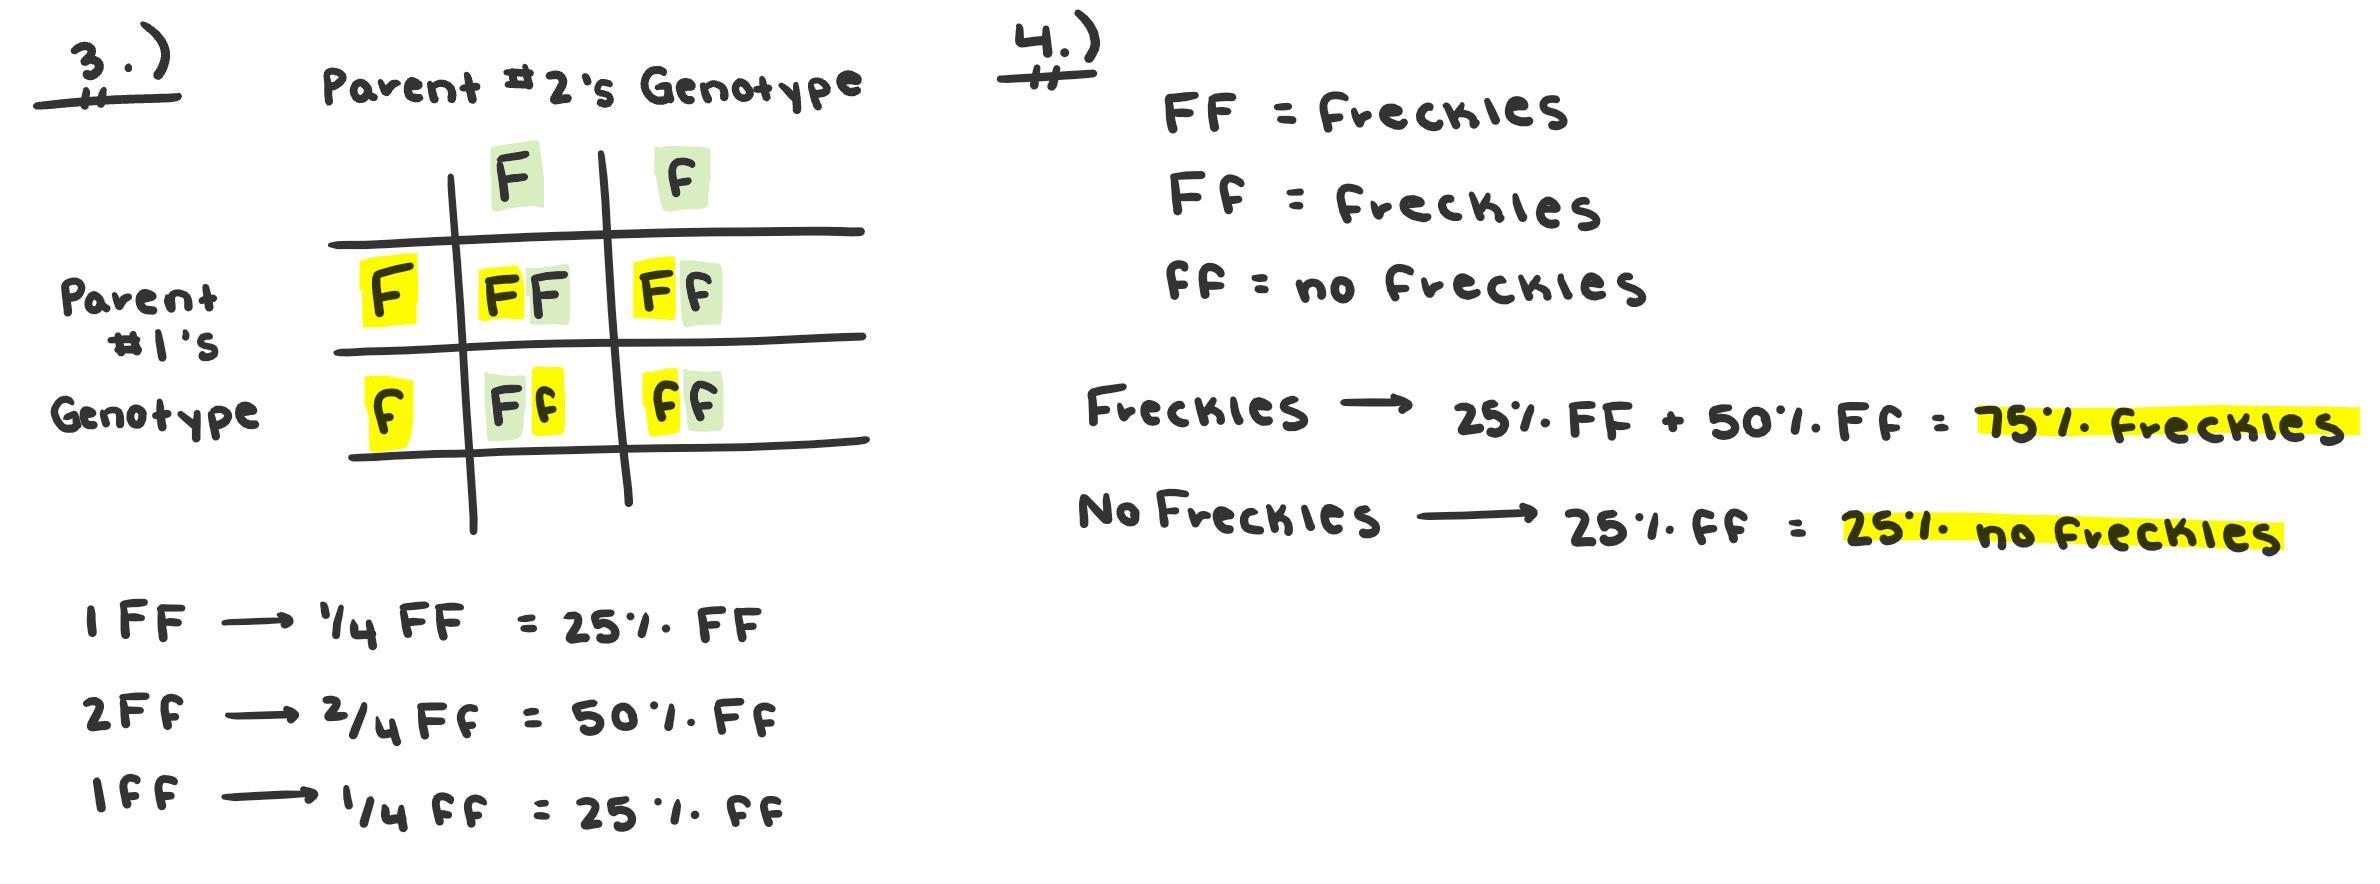 3.)
Parent #2's Genotype
F f
F FF Ff
Parent
#1's
Genotype
f Ff ff
1 FF → 1/4 FF = 25% FF
2Ff → 2/4 Ff = 50% Ff
1ff → 1/4 ff = 25% ff
4.)
FF = freckles
Ff = freckles
ff = no freckles
Freckles → 25% FF + 50% Ff = 75% freckles
No Freckles → 25% ff = 25% no freckles